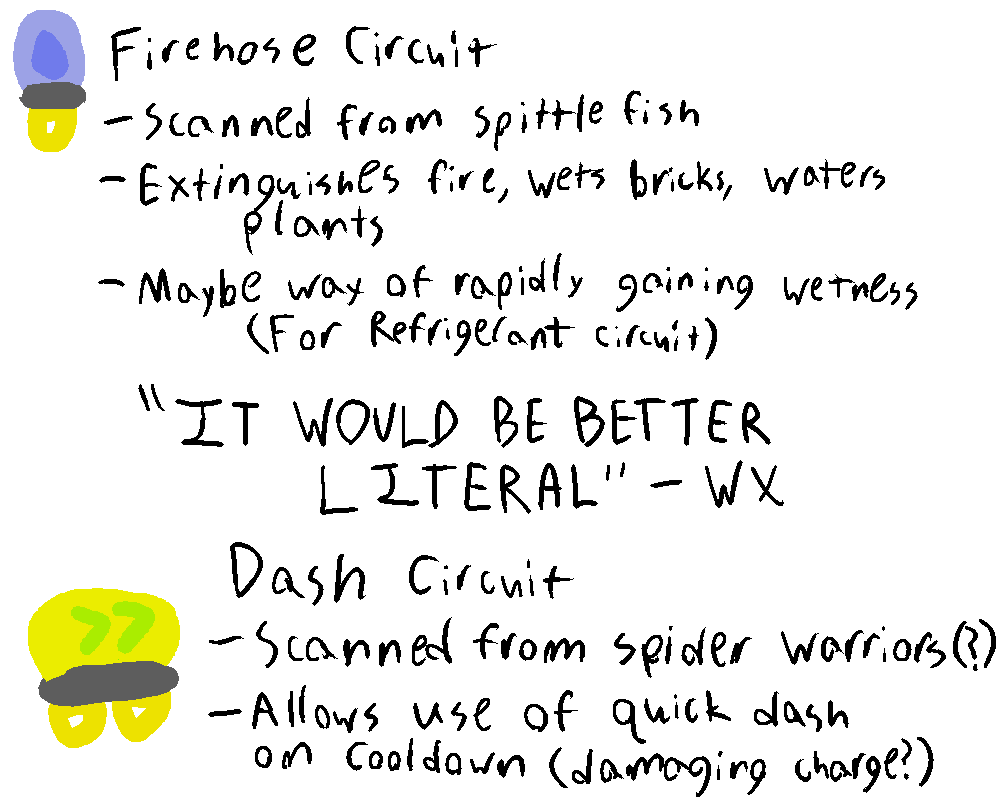 Firehose Circuit
- Scanned from spittle fish
- Extinguishes fire, wets bricks, waters
plants
- Maybe way of rapidly gaining wetness
(For Refrigerant circuit)
"IT WOULD BE BETTER
LITERAL" - WX
Dash Circuit
- Scanned from spider warriors(?)
- Allows use of quick dash
on cooldown (damaging charge?)